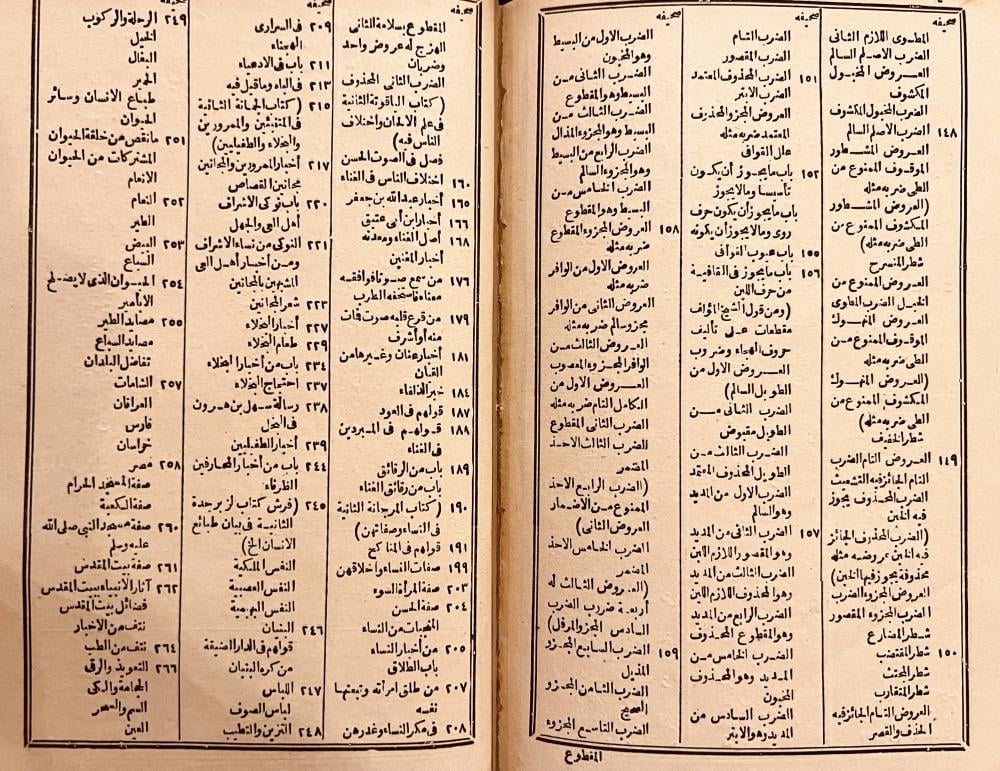 صحيفه
المطوى اللازم الثانى
الضرب الاصلم السالم
العروض المخبول
المكشوف
الضرب المخبول المكشوف
١٤٨ الضرب الاصلم السالم
العروض المشطور
الموقوف الممنوع من
الطى ضربه مثله
(العروض المشطور
المكشوف الممنوع من
الطى ضربه مثله)
شطر المنسرح
العروض الممنوع من
الخبل الضرب المطوى
العروض المنهوك
الموقوف الممنوع من
الطى ضربه مثله
(العروض المنهوك
المكشوف الممنوع من
الطى ضربه مثله)
شطر الخفيف
١٤٩ العروض التام الضرب
التام الجائز فيه التشعيث
الضرب المحذوف يجوز
فيه الخبن
(الضرب المحذوف الجائز
فيه الخبن عروضه مثله
محذوفة يجوز فيها الخبن)
العروض المجزوء الضرب
الضرب المجزوء المقصور
شطر المضارع
١٥٠ شطر المقتضب
شطر المجتث
شطر المتقارب
العروض التام الجائز فيه
الحذف والقصر
صحيفه
الضرب التام
الضرب المقصور
١٥١ الضرب المحذوف المعتمد
الضرب الابتر
العروض المجزو المحذيف
المعتمد ضربه مثله
علل القواف
١٥٢ باب ما يجوز أن يكون
تأسيسا وما لا يجوز
باب ما يجوز أن يكون حرف
روى وما لا يجوز أن يكونه
١٥٥ باب عيوب القوافى
١٥٦ باب ما يجوز فى القافية
من حرف اللين
(ومن قول الشيخ المؤلف
مقطعات على تأليف
حروف الهجاء وضروب
العروض الاول من
الطويل السالم)
الضرب الثانى من
الطويل مقبوض
الضرب الثالث من
الطويل المحذوف المعتمد
الضرب الاول من المديد
وهو السالم
١٥٧ الضرب الثانى من المديد
وهو المقصور اللازم اللين
الضرب الثالث من المديد
وهو المحذوف اللازم اللين
الضرب الرابع من المديد
وهو المقطوع المحذوف
الضرب الخامس من
المديد وهو المحذوف
المخبون
الضرب السادس من
المديد وهو الابتر
صحيفه
الضرب الاول من البسيط
وهو المخبون
الضرب الثانى من
البسيط وهو المقطوع
الضرب الثالث من
البسيط وهو المجزوء المذال
الضرب الرابع من البسيط
وهو المجزوء السالم
الضرب الخامس من
البسيط وهو المقطوع
١٥٨ العروض المجزوء المقطوع
ضربه مثله
العروض الاول من الوافر
ضربه مثله
العروض الثانى من الوافر
مجزو سالم ضربه مثله
العروض الثالث من
الوافر المجزوء المعصوب
العروض الاول من
الكامل التام ضربه مثله
الضرب الثانى المقطوع
الضرب الثالث الاحذ
المضمر
(الضرب الرابع الاحذ
الممنوع من الاضمار
العروض الثانى)
الضرب الخامس الاحذ
المضمر
(العروض الثالث له
أربعة ضروب الضرب
السادس المجزو المرفل)
١٥٩ الضرب السابع المجزو
المذيل
الضرب الثامن المجزو
الصحيح
الضرب التاسع المجزوء
المقطوع
صحيفه
المقطوع بسلامة الثانى
الهزج له عروض واحد
وضربان
الضرب الثانى المحذوف
(كتاب الياقوتة الثانية
فى علم الالحان واختلاف
الناس فيه)
فصل فى الصوت الحسن
١٦٠ اختلاف الناس فى الغناء
١٦٥ أخبار عبد الله بن جعفر
١٦٦ أخبار ابن أبى عتيق
١٦٨ أصل الغناء ومعدنه
أخبار المغنين
١٧٦ من سمع صوتا فوافقه
معناه فاستخفه الطرب
١٧٩ من قرع قلبه صوت فمات
منه أو أشرف
١٨١ أخبار عنان وغيرها من
القيان
١٨٤ خبر الذلفاء
١٨٧ قولهم فى العود
١٨٨ قولهم فى المبردين
فى الغناء
١٨٩ باب من الرقائق
باب من رقائق الغناء
١٩٠ (كتاب المرجانة الثانية
فى النساء وصفاتهن)
١٩١ قولهم فى المناكح
١٩٩ صفات النساء واخلاقهن
٢٠٣ صفة المرأة السوء
٢٠٤ صفة الحسن
المنجبات من النساء
٢٠٥ من أخبار النساء
باب الطلاق
٢٠٧ من طلق امرأته وتبعتها
نفسه
٢٠٨ فى مكر النساء وغدرهن
صحيفه
٢٠٩ فى السرارى
الهجناء
٢١١ باب فى الادعياء
٢١٣ فى الباه وما قيل فيه
٢١٥ (كتاب الجمانة الثانية
فى المتنبئين والممرورين
والبخلاء والطفيليين)
٢١٧ أخبار الممرورين والمجانين
مجانين القصاص
٢٢٠ باب نوكى الاشراف
أهل العى والجهل
٢٢١ النوكى من نساء الاشراف
ومن أخبار أهل العى
المشبهين بالمجانين
٢٢٣ شعر المجانين
٢٢٧ أخبار البخلاء
٢٢٩ طعام البخلاء
٢٣٤ باب من أخبار البخلاء
٢٣٧ احتجاج البخلاء
٢٣٨ رسالة سهل بن هرون
فى البخل
٢٣٩ أخبار الطفيليين
٢٤٤ باب من أخبار المحارفين
الظرفاء
٢٤٥ (فرش كتاب الزبرجدة
الثانية فى بيان طبائع
الانسان الخ)
النفس الملكية
النفس الغضبية
النفس البهيمية
٢٤٦ البنيان
قولهم فى الدار الضيقة
من كره البنيان
٢٤٧ اللباس
لباس الصوف
٢٤٨ التزين والتطيب
صحيفه
٢٤٩ الرحلة والركوب
الخيل
البغال
الحمير
طبائع الانسان وسائر
الحيوان
٢٥١ ما نقص من خلقة الحيوان
المشتركات من الحيوان
الانعام
٢٥٢ النعام
الطير
٢٥٣ البيض
السباع
٢٥٤ الحيوان الذى لا يصلح
الا بأمير
٢٥٥ مصايد الطير
مصايد السباع
تفاضل البلدان
٢٥٧ الشامات
العراقان
فارس
خراسان
٢٥٨ مصر
صفة المسجد الحرام
صفة الكعبة
٢٦٠ صفة مسجد النبى صلى الله
عليه وسلم
٢٦١ صفة بيت المقدس
٢٦٢ آثار الأنبياء ببيت المقدس
فضائل بيت المقدس
نتف من الاخبار
٢٦٤ نتف من الطب
٢٦٦ التعويذ والرقى
الحجامة والكى
السم والسحر
العين